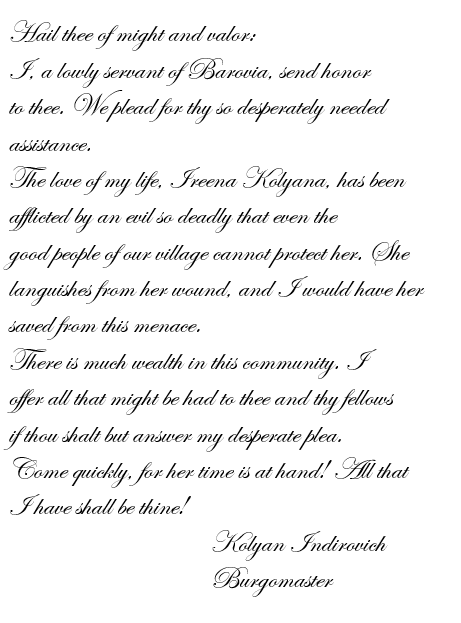 Hail thee of might and valor:
I, a lowly servant of Barovia, send honor
to thee. We plead for thy so desperately needed
assistance.
The love of my life, Ireena Kolyana, has been
afflicted by an evil so deadly that even the
good people of our village cannot protect her. She
languishes from her wound, and I would have her
saved from this menace.
There is much wealth in this community. I
offer all that might be had to thee and thy fellows
if thou shalt but answer my desperate plea.
Come quickly, for her time is at hand! All that
I have shall be thine!
Kolyan Indirovich
Burgomaster